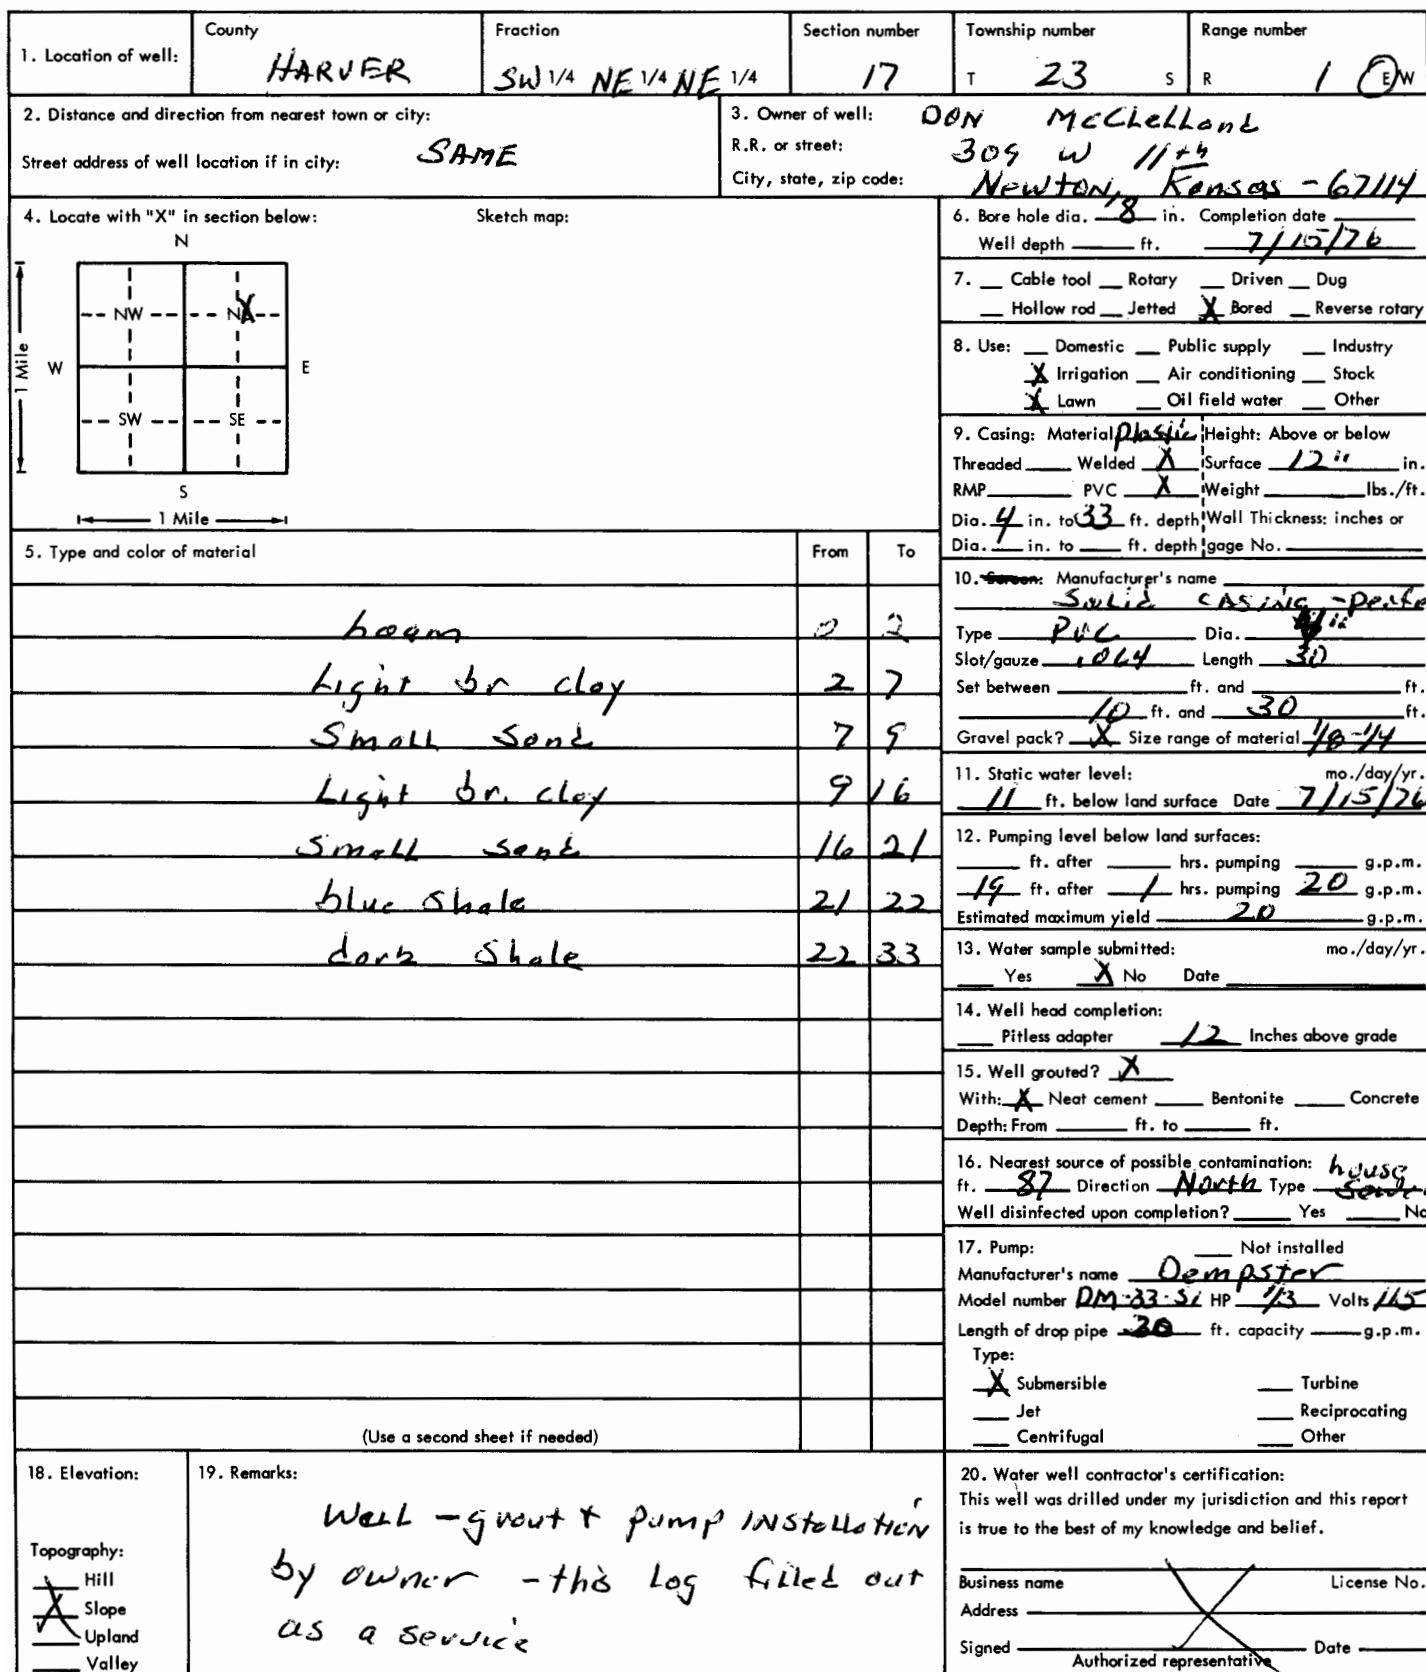 County Fraction Section number Township number Range number
1. Location of well: HARVER SW 1/4 NE 1/4 NE 1/4 17 T 23 S R 1 E W
2. Distance and direction from nearest town or city:
Street address of well location if in city: SAME
3. Owner of well: DON McClelland
R.R. or street: 309 W 11th
City, state, zip code: Newton, Kansas - 67114
4. Locate with "X" in section below: Sketch map:
N
NW NE X
W E
1 Mile
SW SE
S
1 Mile
5. Type and color of material From To
Loam 0 2
Light br clay 2 7
Small Sand 7 9
Light br. clay 9 16
Small sand 16 21
blue Shale 21 22
dark Shale 22 33
(Use a second sheet if needed)
6. Bore hole dia. 8 in. Completion date
Well depth ft. 7/15/76
7. Cable tool Rotary Driven Dug
Hollow rod Jetted X Bored Reverse rotary
8. Use: Domestic Public supply Industry
X Irrigation Air conditioning Stock
X Lawn Oil field water Other
9. Casing: Material plastic Height: Above or below
Threaded Welded X Surface 12" in.
RMP PVC X Weight lbs./ft.
Dia. 4 in. to 33 ft. depth Wall Thickness: inches or
Dia. in. to ft. depth gage No.
10. Screen: Manufacturer's name
Solid CASING - perfo
Type PVC Dia.
Slot/gauze .064 Length 30
Set between ft. and ft.
10 ft. and 30 ft.
Gravel pack? X Size range of material 1/8-1/4
11. Static water level: mo./day/yr.
11 ft. below land surface Date 7/15/76
12. Pumping level below land surfaces:
ft. after hrs. pumping g.p.m.
19 ft. after 1 hrs. pumping 20 g.p.m.
Estimated maximum yield 20 g.p.m.
13. Water sample submitted: mo./day/yr.
Yes X No Date
14. Well head completion:
Pitless adapter 12 Inches above grade
15. Well grouted? X
With: X Neat cement Bentonite Concrete
Depth: From ft. to ft.
16. Nearest source of possible contamination: house
ft. 87 Direction North Type sewer
Well disinfected upon completion? Yes No
17. Pump: Not installed
Manufacturer's name Dempster
Model number DM-33-Si HP 1/3 Volts 115
Length of drop pipe 30 ft. capacity g.p.m.
Type:
X Submersible Turbine
Jet Reciprocating
Centrifugal Other
18. Elevation:
Topography:
Hill
X Slope
Upland
Valley
19. Remarks:
Well - grout + pump INStallation
by owner - this Log filled out
as a service
20. Water well contractor's certification:
This well was drilled under my jurisdiction and this report
is true to the best of my knowledge and belief.
Business name License No.
Address
Signed Date
Authorized representative